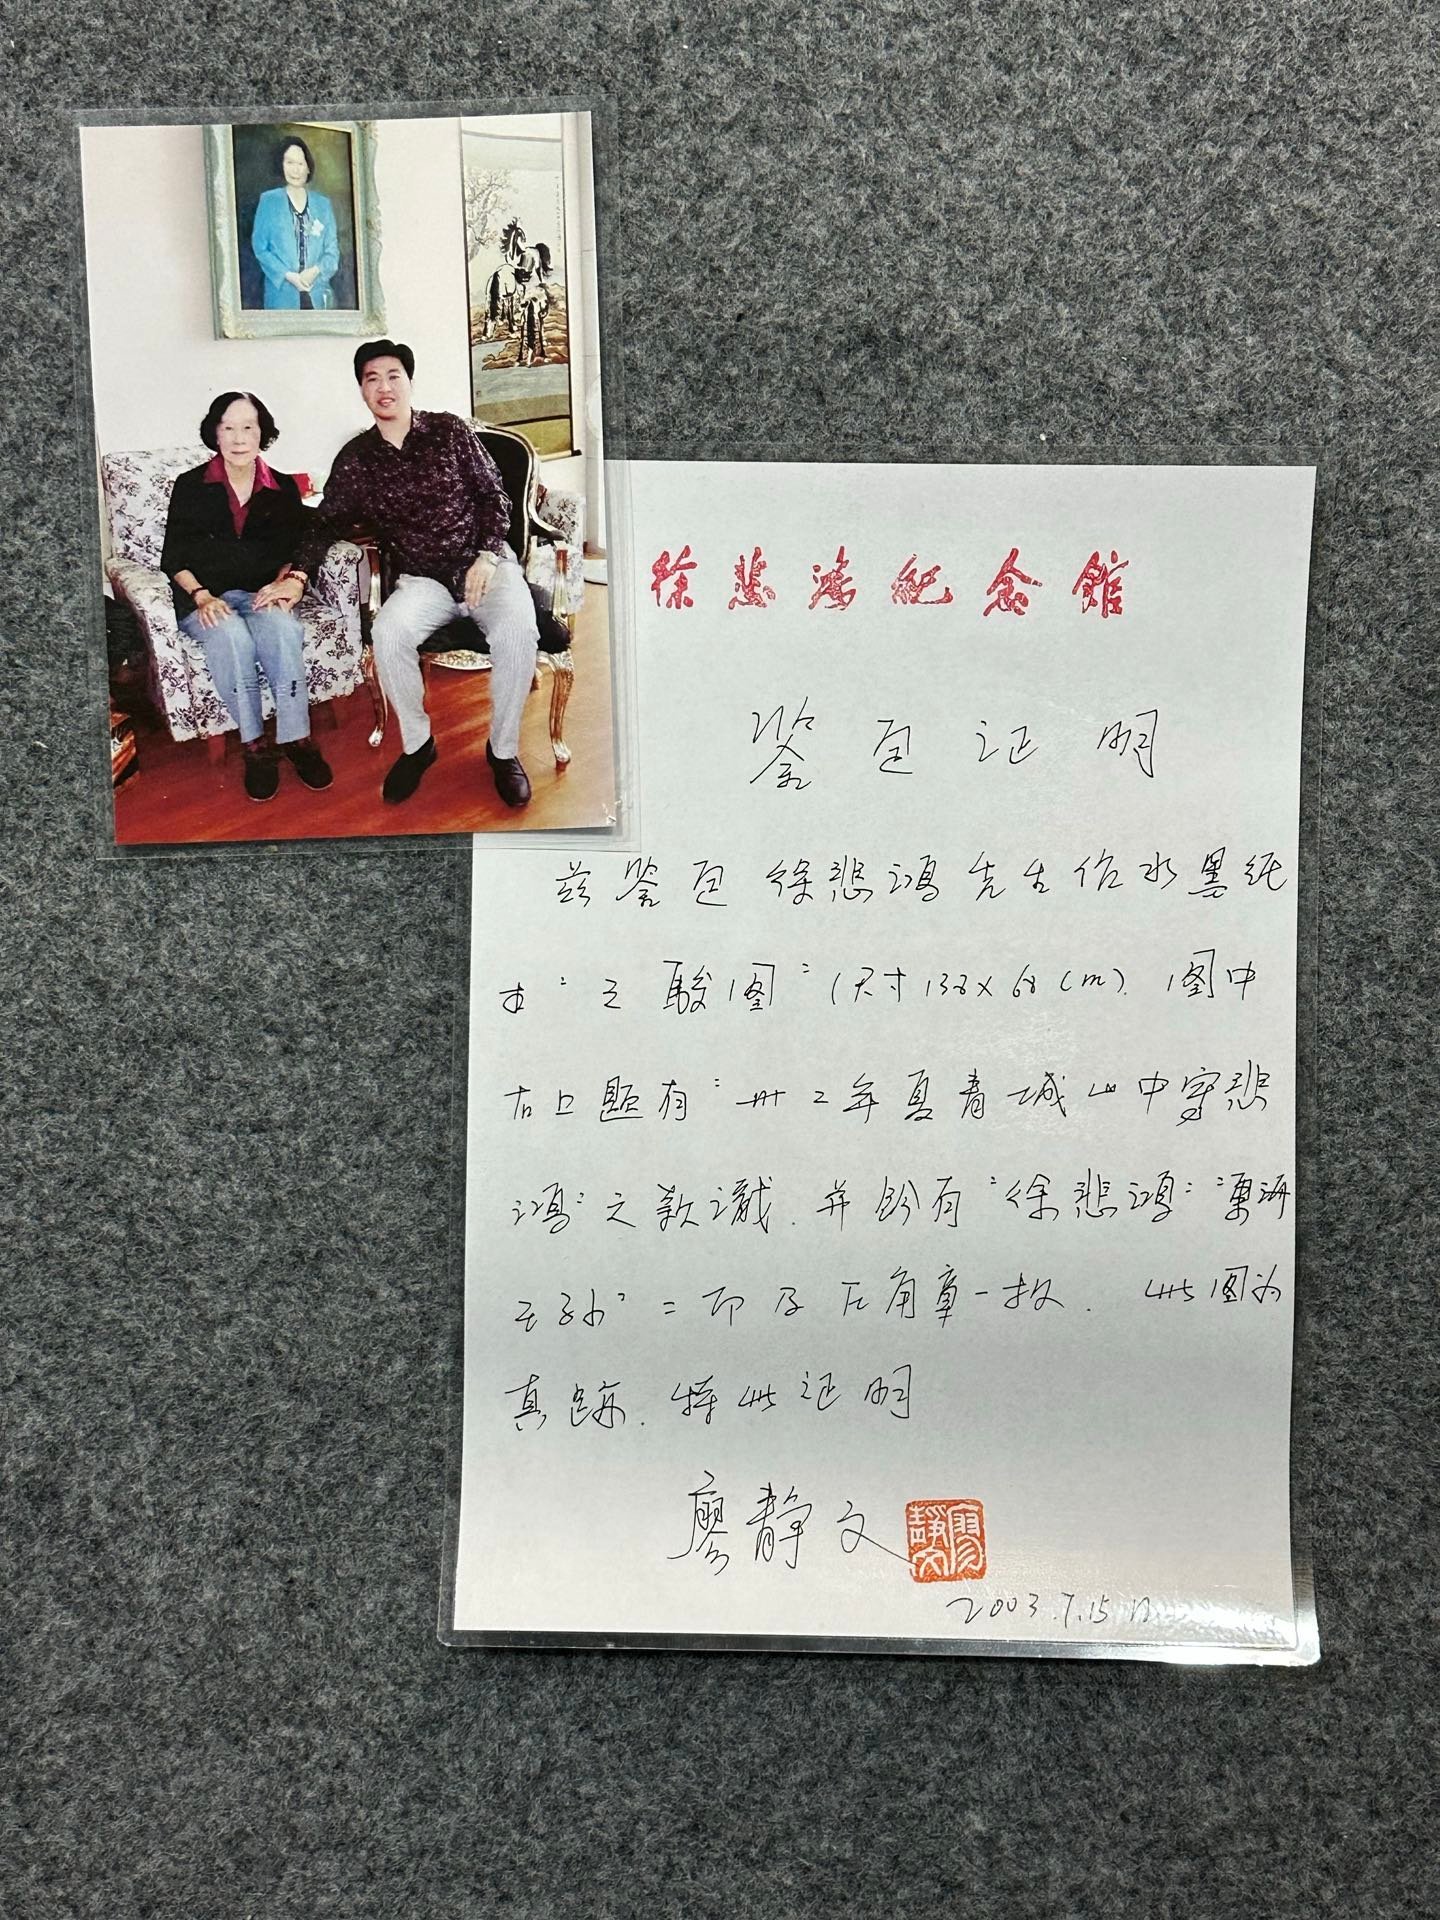 徐悲鸿纪念馆
鉴定证明
兹鉴定徐悲鸿先生作水墨纸
本"三骏图"(尺寸138×68cm).图中
右上题有"卅二年夏青城山中写悲
鸿"之款识.并钤有"徐悲鸿""东海
王孙"二印及左角章一枚.此图为
真迹.特此证明
廖静文
廖靜文
2003.7.15日